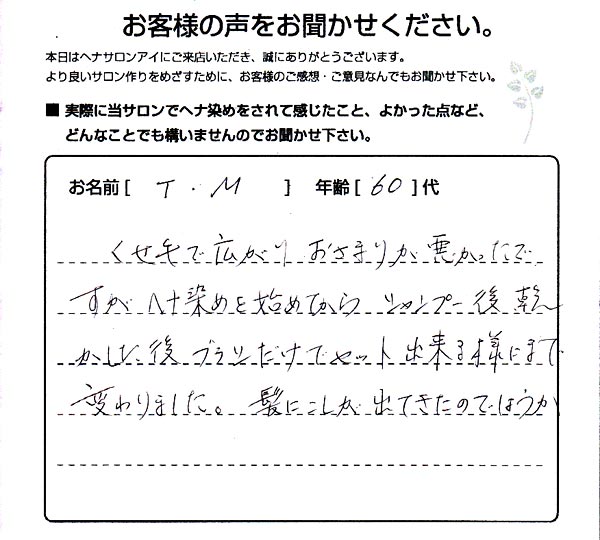 お客様の声をお聞かせください。
本日はヘナサロンアイにご来店いただき、誠にありがとうございます。
より良いサロン作りをめざすために、お客様のご感想・ご意見なんでもお聞かせ下さい。
■ 実際に当サロンでヘナ染めをされて感じたこと、よかった点など、
どんなことでも構いませんのでお聞かせ下さい。
お名前[ T・M ] 年齢[ 60 ]代
くせ毛で広がり おさまりが悪かったで
すが ヘナ染めを始めてから シャンプー後 乾
かした後ブラシだけでセット出来る様にまで
変わりました。髪にこしが出てきたのでしょうか